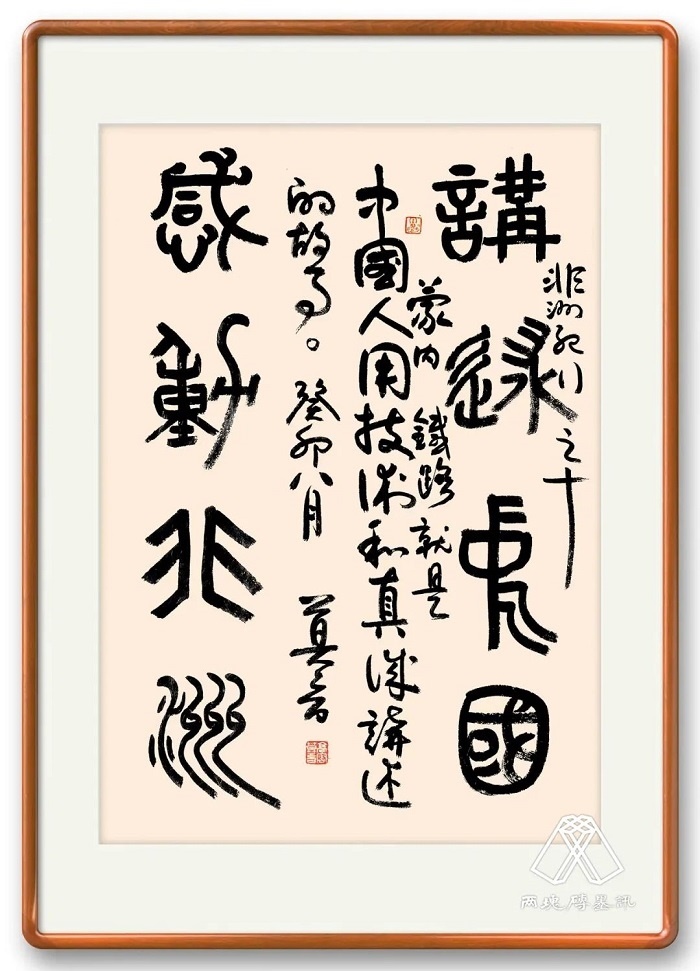 非洲紀行之十
講述國
感動非洲
蒙内鐵路就是
中國人用技術和真誠講述
的故事。癸卯八月 莫言
两塊磚墨訊